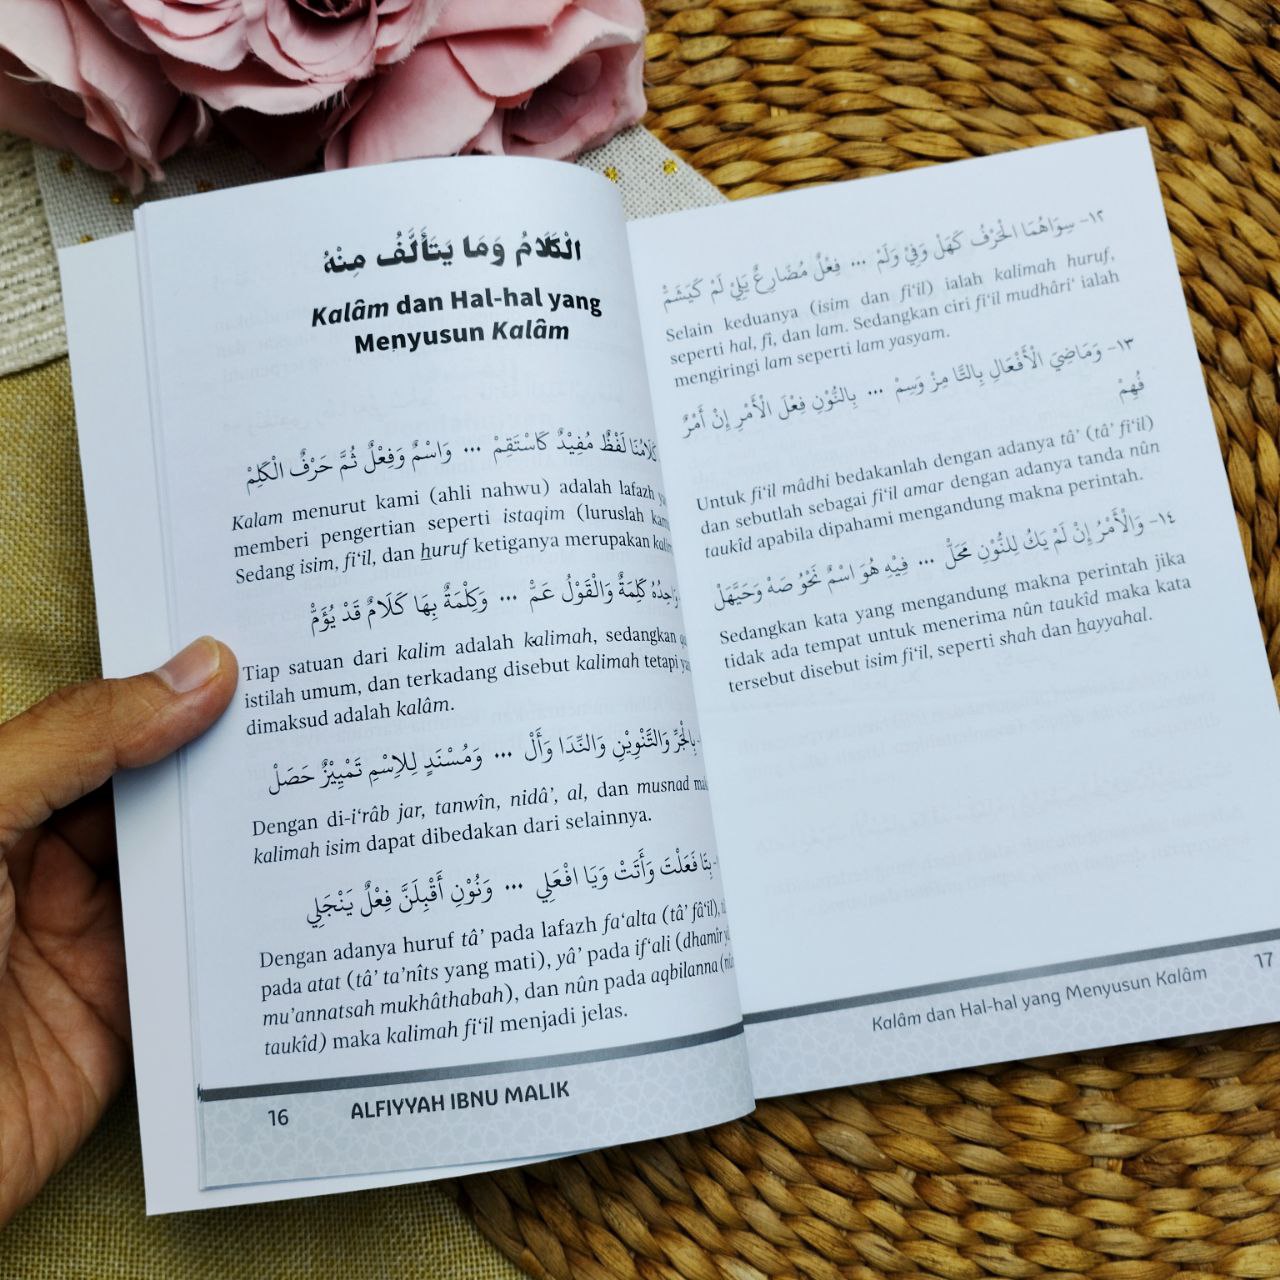 الْكَلَامُ وَمَا يَتَأَلَّفُ مِنْهُ
Kalâm dan Hal-hal yang
Menyusun Kalâm
كَلَامُنَا لَفْظٌ مُفِيْدٌ كَاسْتَقِمْ ... وَاسْمٌ وَفِعْلٌ ثُمَّ حَرْفٌ الْكَلِمْ
Kalam menurut kami (ahli nahwu) adalah lafazh
memberi pengertian seperti istaqim (luruslah
Sedang isim, fi‘il, dan huruf ketiganya merupakan
وَاحِدُهُ كَلِمَةٌ وَالْقَوْلُ عَمّْ ... وَكِلْمَةٌ بِهَا كَلَامٌ قَدْ يُؤَمّْ
Tiap satuan dari kalim adalah kalimah, sedangkan
istilah umum, dan terkadang disebut kalimah tetapi
dimaksud adalah kalâm.
بِالْجَرِّ وَالتَّنْوِيْنِ وَالنِّدَا وَأَلْ ... وَمُسْنَدٍ لِلِاسْمِ تَمْيِيْزٌ حَصَلْ
Dengan di-i‘râb jar, tanwîn, nidâ’, al, dan musnad
kalimah isim dapat dibedakan dari selainnya.
بِتَا فَعَلْتَ وَأَتَتْ وَيَا افْعَلِي ... وَنُوْنِ أَقْبِلَنَّ فِعْلٌ يَنْجَلِي
Dengan adanya huruf tâ’ pada lafazh fa‘alta (tâ’ fâ‘il),
pada atat (tâ’ ta’nîts yang mati), yâ’ pada if‘ali (dhamîr
mu’annatsah mukhâthabah), dan nûn pada aqbilanna
taukîd) maka kalimah fi‘il menjadi jelas.
16 ALFIYYAH IBNU MALIK
١٢- سِوَاهُمَا الْحَرْفُ كَهَلْ وَفِيْ وَلَمْ ... فِعْلٌ مُضَارِعٌ يَلِيْ لَمْ كَيَشَمْ
Selain keduanya (isim dan fi‘il) ialah kalimah huruf,
seperti hal, fî, dan lam. Sedangkan ciri fi‘il mudhâri‘ ialah
mengiringi lam seperti lam yasyam.
١٣- وَمَاضِيَ الْأَفْعَالِ بِالتَّا مِزْ وَسِمْ ... بِالنُّوْنِ فِعْلَ الْأَمْرِ إِنْ أَمْرٌ
فُهِمْ
Untuk fi‘il mâdhi bedakanlah dengan adanya tâ’ (tâ’ fi‘il)
dan sebutlah sebagai fi‘il amar dengan adanya tanda nûn
taukîd apabila dipahami mengandung makna perintah.
١٤- وَالْأَمْرُ إِنْ لَمْ يَكُ لِلنُّوْنِ مَحَلّْ ... فِيْهِ هُوَ اسْمٌ نَحْوُ صَهْ وَحَيَّهَلْ
Sedangkan kata yang mengandung makna perintah jika
tidak ada tempat untuk menerima nûn taukîd maka kata
tersebut disebut isim fi‘il, seperti shah dan hayyahal.
Kalâm dan Hal-hal yang Menyusun Kalâm 17